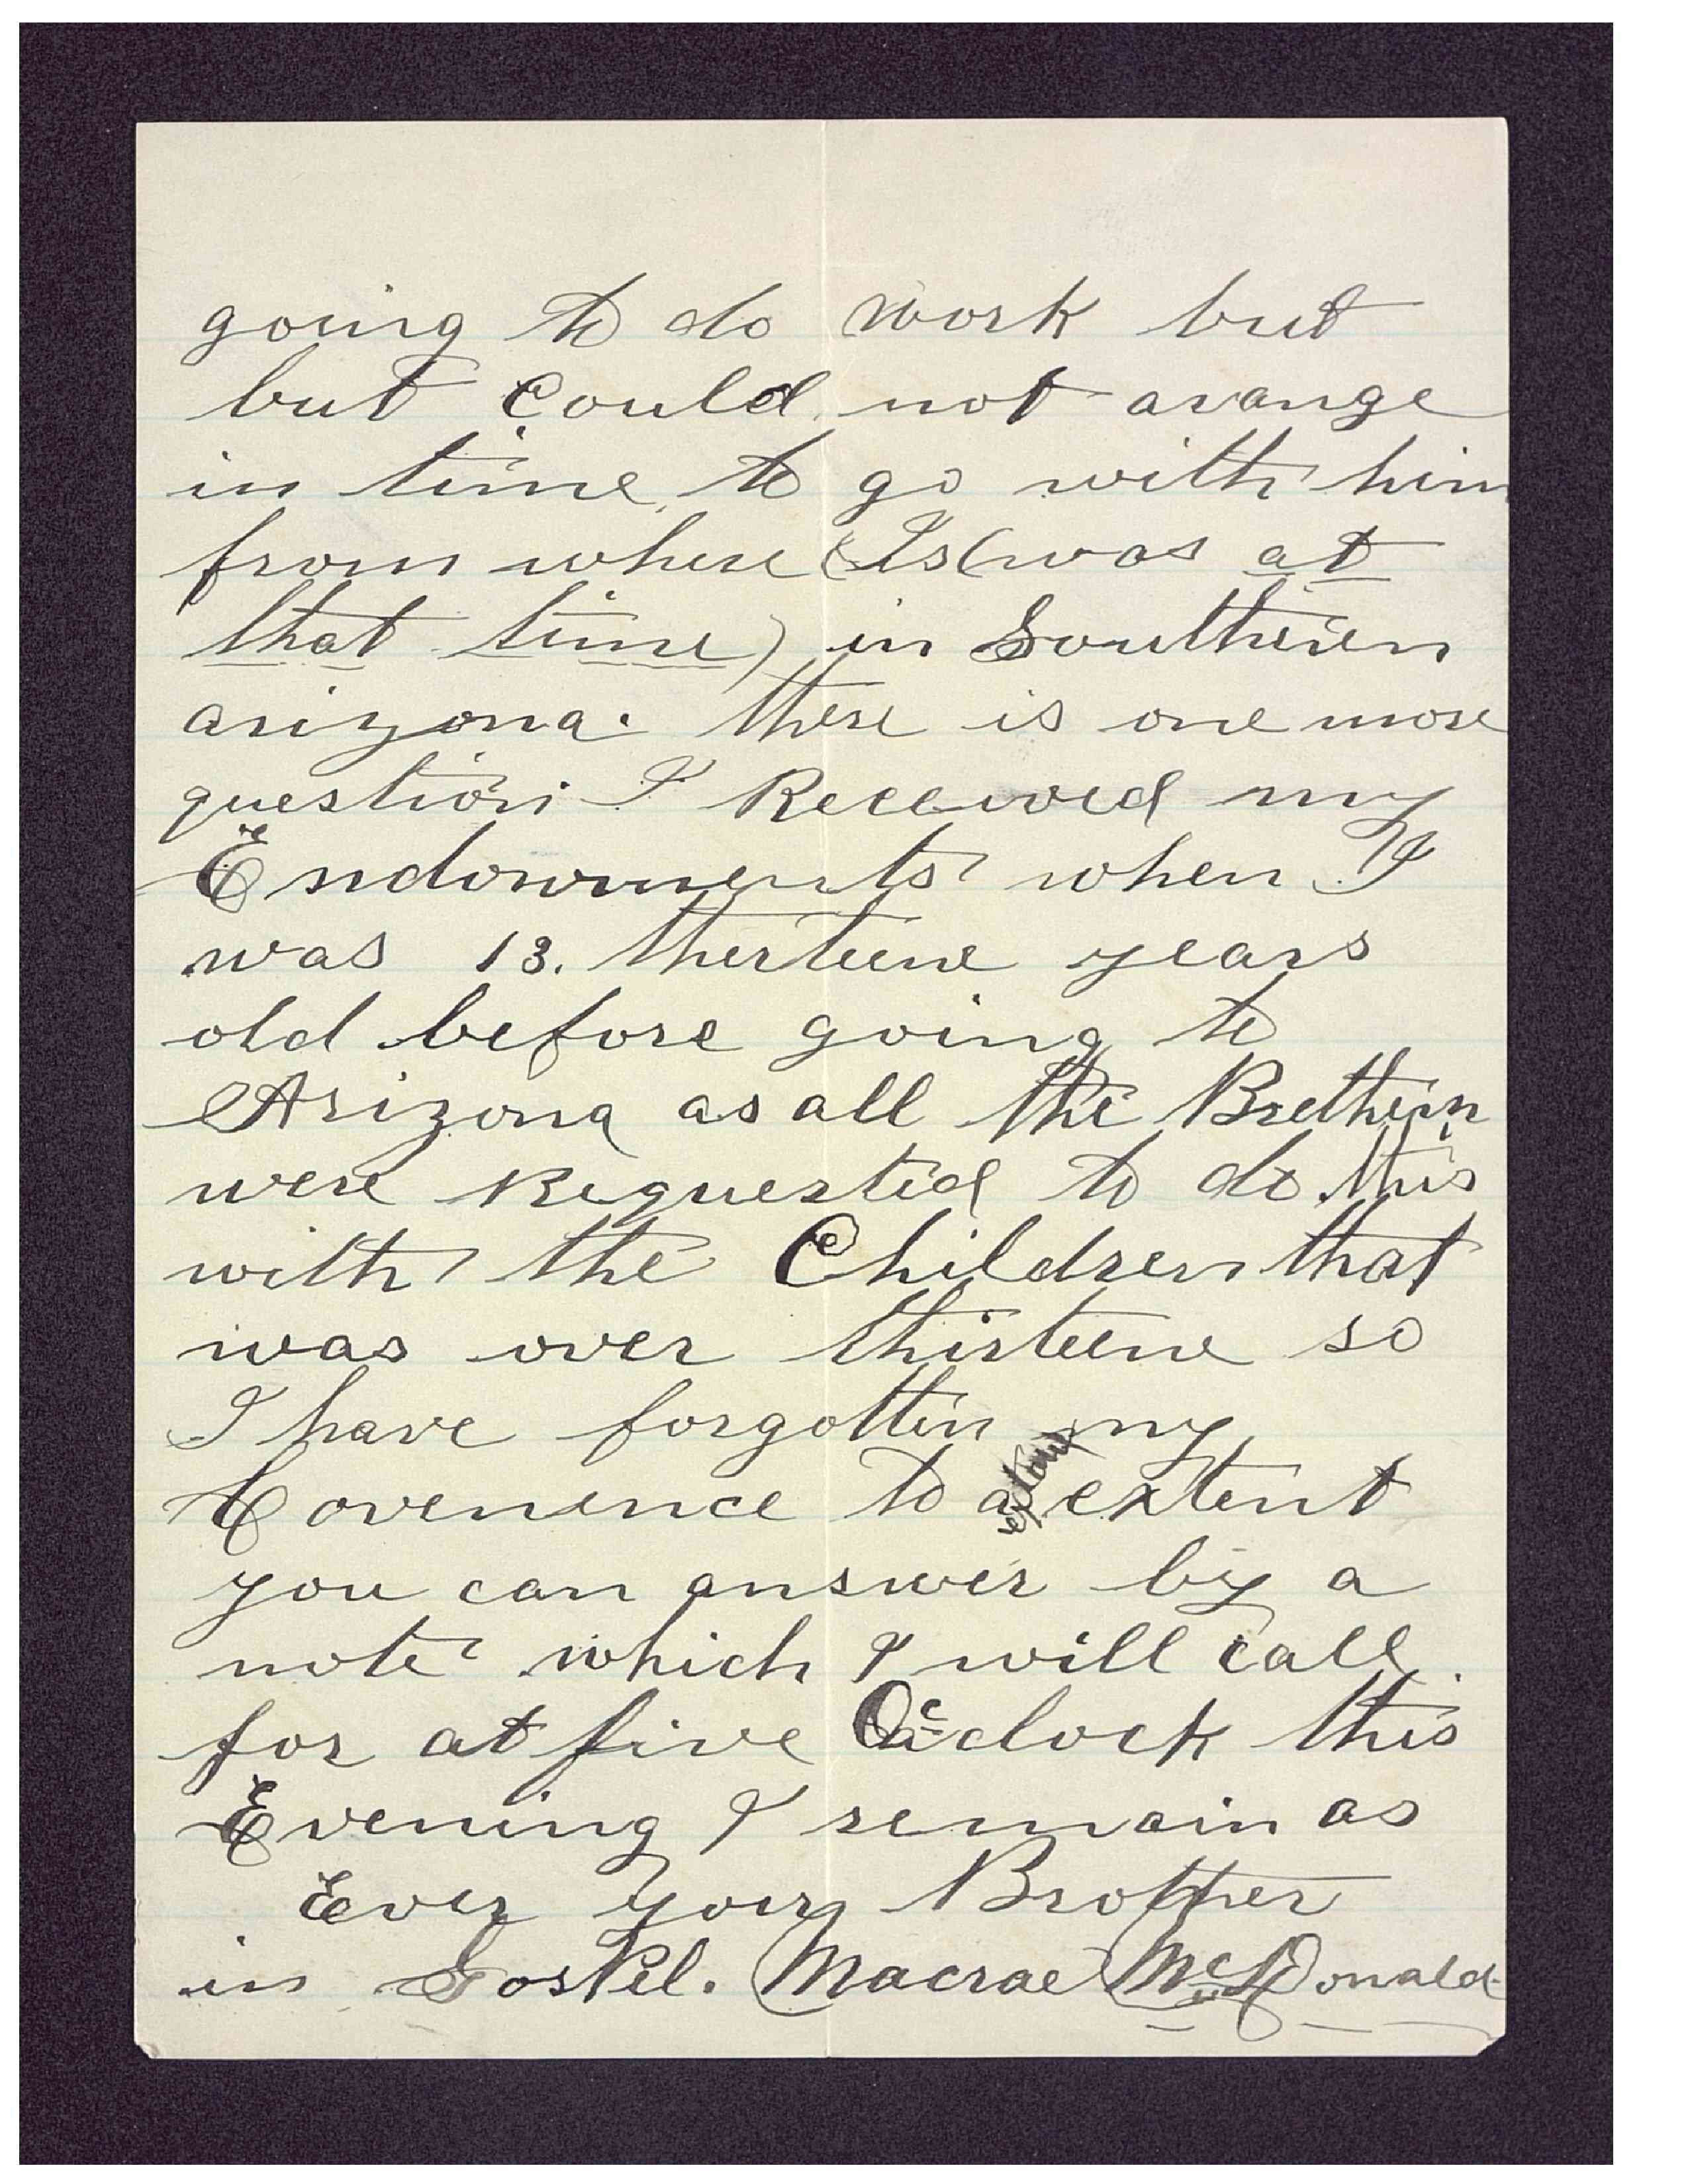 going to do work but
but Could not arange
in time to go with him
from where (Is(was at
that time) in Southeren
arizona. there is one more
question I Receeived my
Endowments when I
was 13. therteene years
old before going to
Arizona as all the Brethern
were Requested to do this
with the Children that
was over thirteene so
I have forgotten my
Covenence to a extent
you can answer by a
note which I will call
for at five O'clock this
Evening I remain as
Ever your Brother
in Gospel. Macrae McDonald